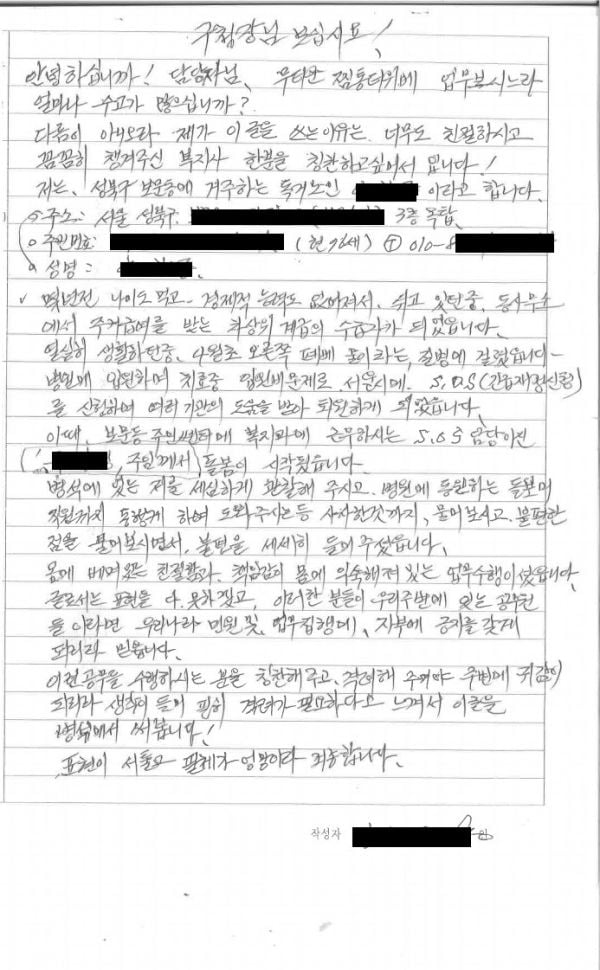 구청장님 보십시요!
안녕하십니까! 담당자님, 무더운 찜통더위에 업무보시느라
얼마나 수고가 많으십니까?
다름이 아니오라 제가 이 글을 쓰는 이유는 너무도 친절하시고
꼼꼼히 챙겨주신 복지사 한분을 칭찬하고 싶어서 입니다!
저는, 성북구 보문동에 거주하는 독거노인 이라고 합니다.
주소: 서울 성북구 3층 옥탑
주민번호: (현 76세) 010-8
성명:
몇년전 나이도 먹고, 경제적 능력도 없어져서, 쉬고 있던중, 동사무소
에서 주거급여를 받는 최상의 계급의 수급자가 되었읍니다.
성실히 생활하던중, 4월초 오른쪽 폐에 이라는, 질병에 걸렸읍니다
병원에 입원하며 치료중 입원비 문제로 서울시에. S.O.S(긴급재정신청)
를 신청하여 여러기관의 도움을 받아 퇴원하게 되었읍니다.
이때, 보문동 주민쎈타에 복지과에 근무하시는 S.O.S 담당이신
( , 주임께서) 돌봄이 시작됬읍니다.
병석에 있는 저를 세심하게 관찰해 주시고. 병원에 동원하는 돌보미
직원까지 동행게 하여 도와주시는등 사사한것까지, 물어보시고. 불편한
점을 물어보시면서, 불편을 세세히 들어 주셨읍니다.
몸에 베여있는 친절함과. 책임감이 몸에 익숙해져 있는 업무수행이셨읍니다
글로서는 표현을 다. 못하겠고, 이러한 분들이 우리주변에 있는 공무원
들 이라면 우리나라 민원및, 업무집행에, 자부에 긍지를 갖게
되리라 믿읍니다.
이런 공무을 수행하시는 분을 칭찬해 주고, 격려해 주어야 주변에 귀감이
되리라 들이 필히 격려가 필요하다고 느껴서 이글을
병석에서 써봅니다!
표현이 서툴고 필체가 엉망이라 죄송합니다.
작성자